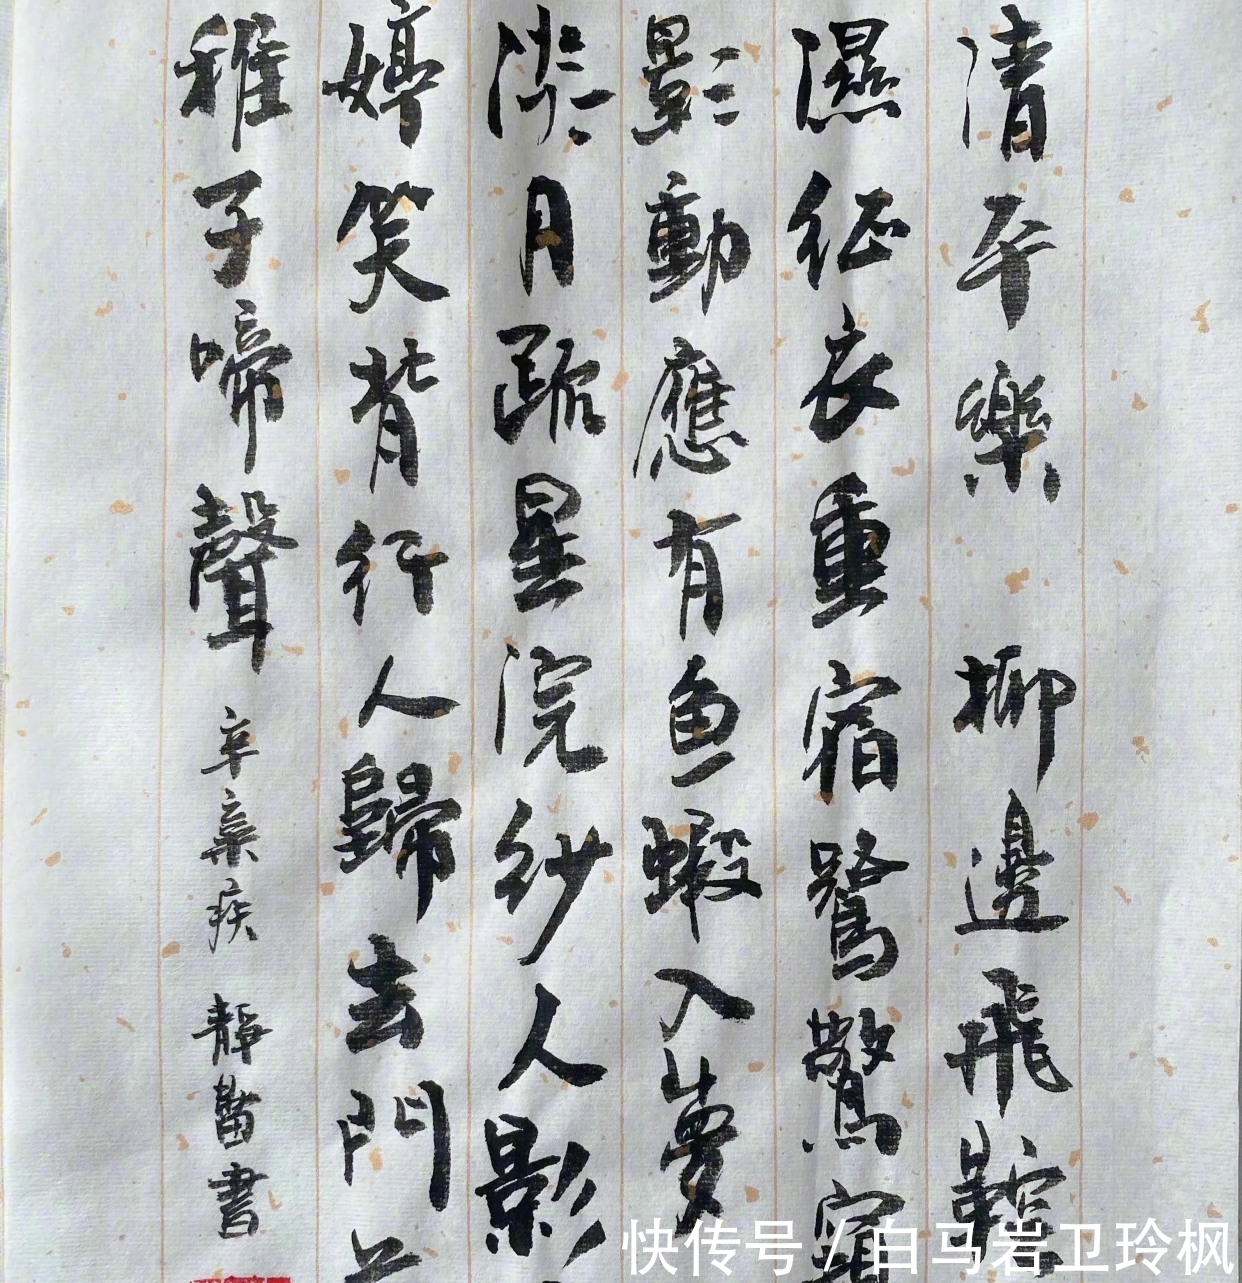 清平樂 柳邊飛鞚
濕征衣重宿鷺驚窺
影動應有鱼蝦入夢
淡月疏星浣紗人影
婷笑背行人歸去門
稚子啼聲 辛棄疾 靜 書
快传号 / 白马岩卫玲枫